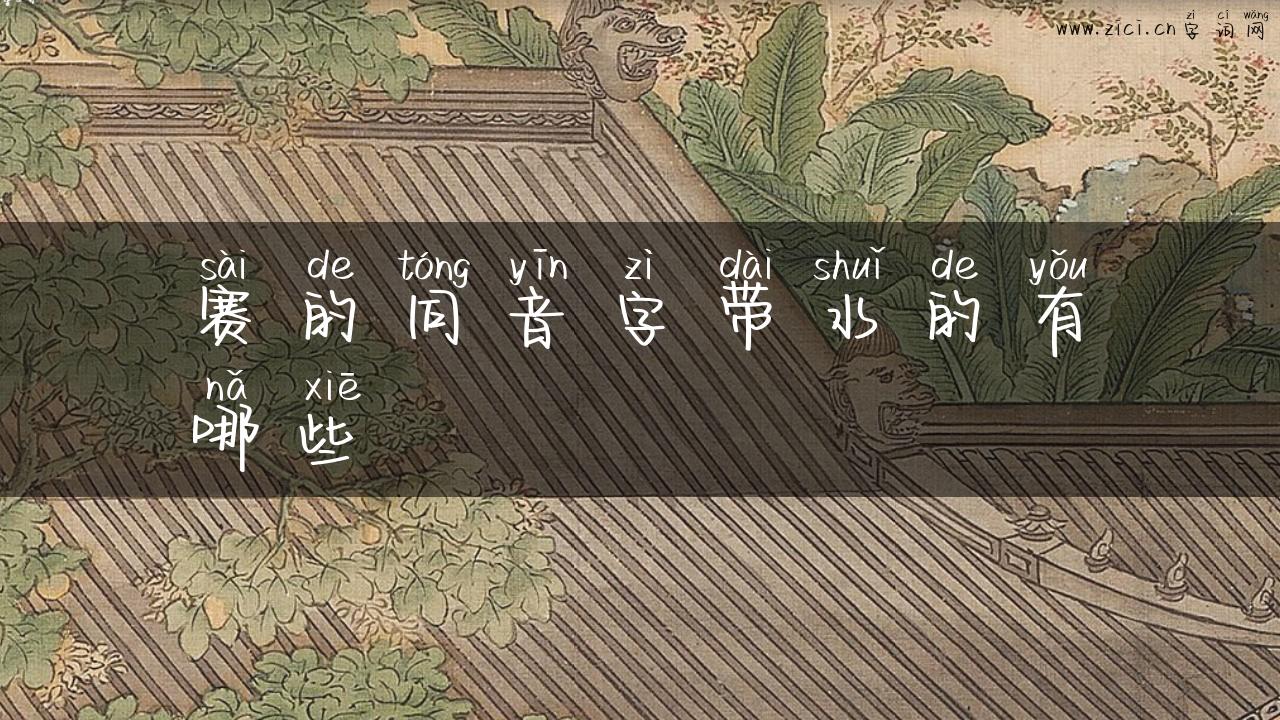 zì cí wǎng
www.zici.cn 字 词 网
sài de tóng yīn zì dài shuǐ de yǒu
赛 的 同 音 字 带 水 的 有
nǎ xiē
哪 些